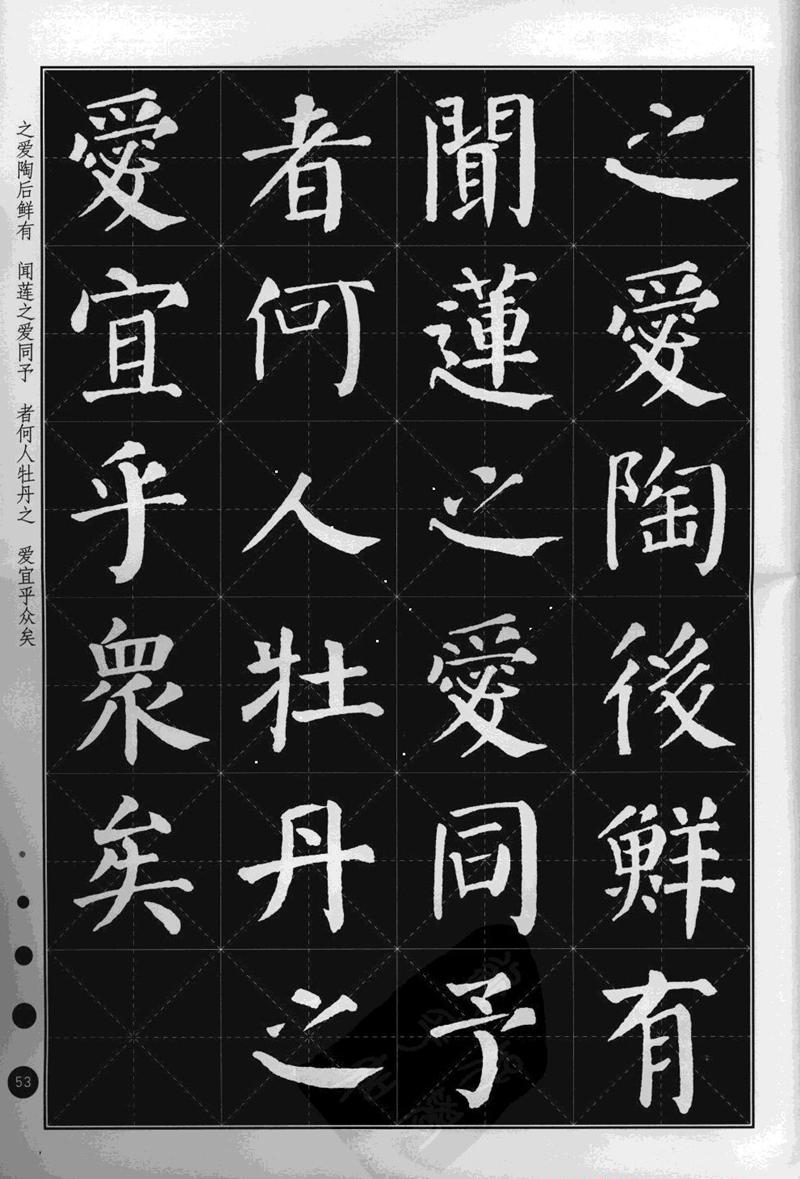 之愛陶後鮮有
聞蓮之愛同予
者何人牡丹之
愛宜乎眾矣
之爱陶后鲜有 闻莲之爱同予 者何人牡丹之 爱宜乎众矣
53